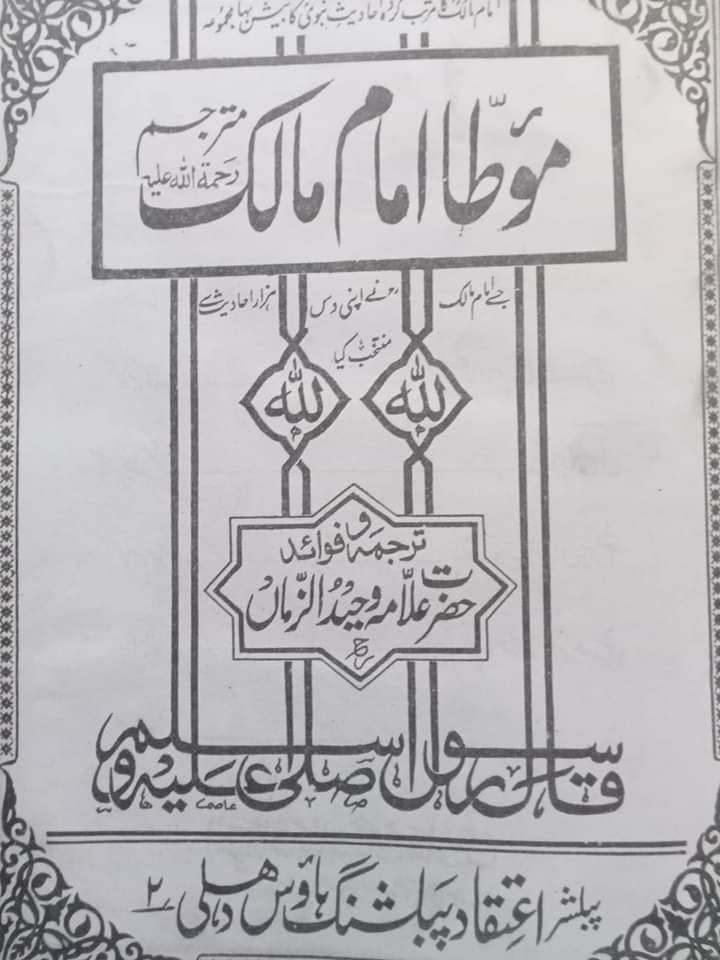 امام مالکؒ کا مرتب کردہ احادیثِ نبویؐ کا بیش بہا مجموعہ
مؤطّا امام مالک مترجم
رحمة الله علیہ
جسے امام مالک رح نے اپنی دس ہزار احادیث سے
منتخب کیا
الله الله
ترجمہ و فوائد
حضرت علّامہ وحیدُ الزّماں
رح
قال رسول الله صلى الله عليه وسلم
پبلشر اعتقاد پبلشنگ ہاؤس دھلی ۲